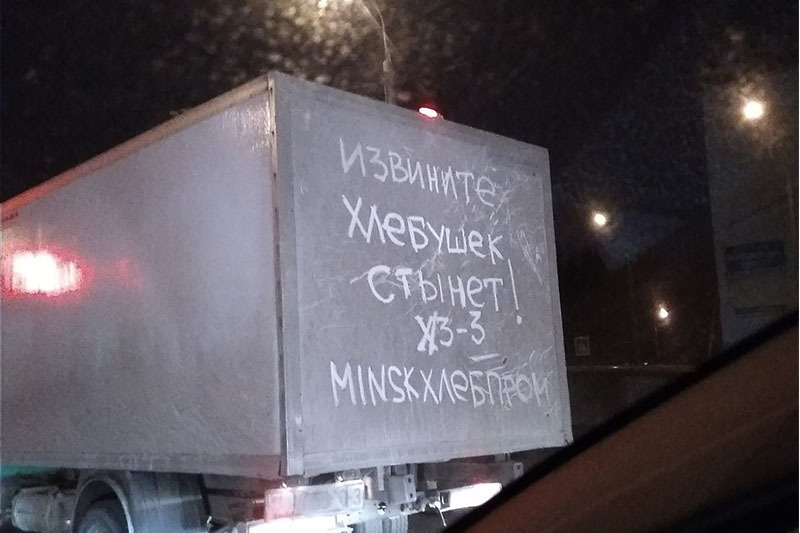 ИЗВИНИТЕ
ХЛЕБУШЕК
СТЫНЕТ!
ХЗ-3
MINSKХЛЕБПРОМ